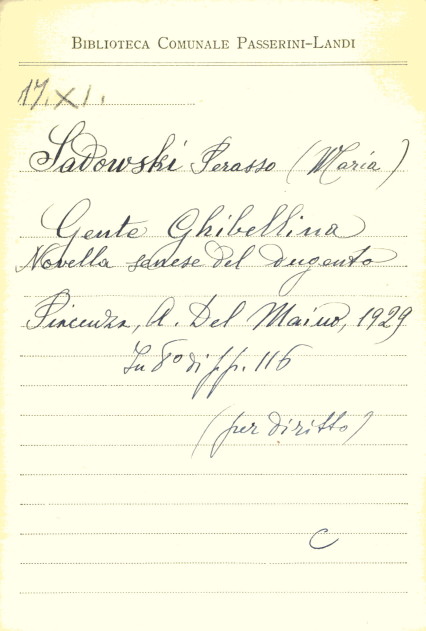 BIBLIOTECA COMUNALE PASSERINI-LANDI
17.XI.
Sadowski Perasso (Maria)
Gente Ghibellina
Novella sanese del dugento
Piacenza, A. Del Maino, 1929
In 8º di pp. 116
(per diritto)
C